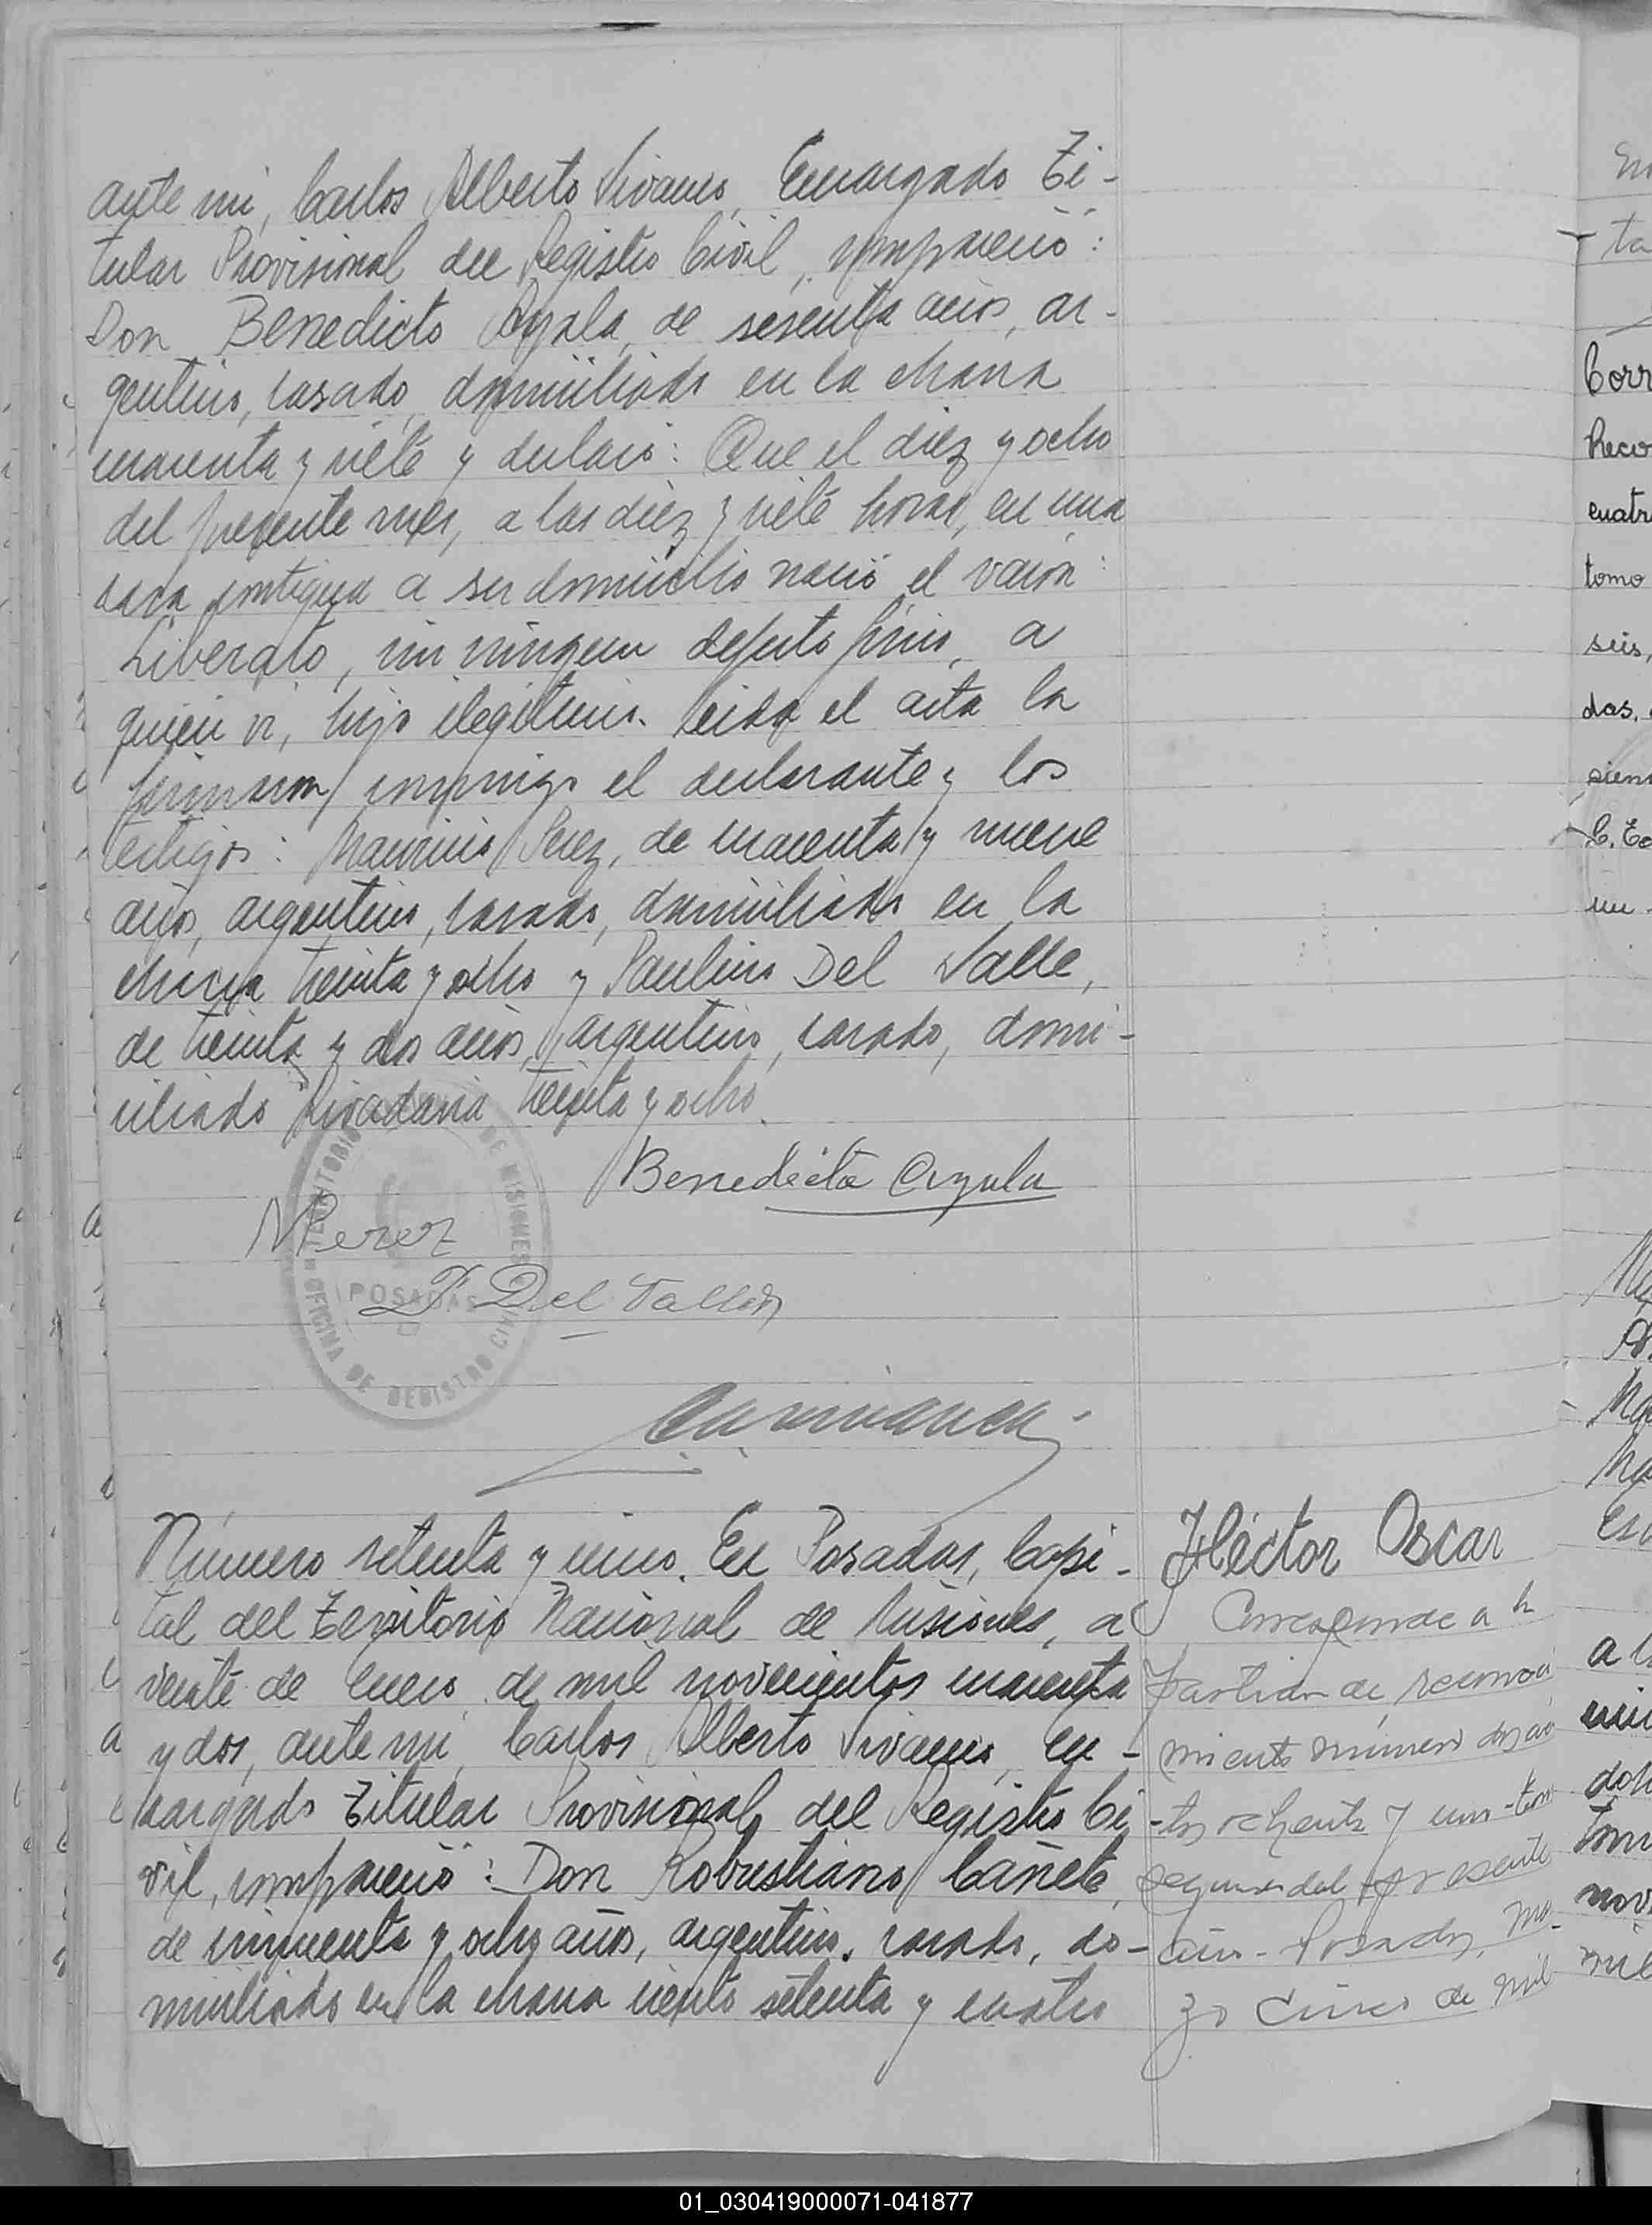 ante mi, Carlos Alberto Vivanco, Encargado Ti-
tular Provisional del Registro Civil, compareció:
Don Benedicto Ayala, de sesenta años, ar-
gentino, casado, domiciliado en la chacra
cuarenta y siete y declaró: Que el diez y ocho
del presente mes, a las diez y siete horas, en una
casa contigua a su domicilio nació el varón:
Liberato, sin ningun defecto físico, a
quien ví, hijo ilegítimo. Leida el acta la
firmaron conmigo el declarante y los
testigos: Mauricio Perez, de cuarenta y nueve
años, argentino, casado, domiciliado en la
chacra treinta y ocho y Paulino Del Valle,
de treinta y dos años, argentino, casado, domi-
ciliado Rivadavia treinta y ocho.
Benedicto Ayala
MPerez
P. Del Valle
TERRITORIO DE MISIONES
POSADAS
OFICINA DE REGISTRO CIVIL
Número setenta y uno. En Posadas, Capi-
tal del Territorio Nacional de Misiones, a
veinte de Enero de mil novecientos cuarenta
y dos, ante mi, Carlos Alberto Vivanco, En-
cargado Titular Provisional del Registro Ci-
vil, compareció: Don Robustiano Cañete,
de cincuenta y ocho años, argentino, casado, do-
miciliado en la chacra ciento setenta y cuatro
Héctor Oscar
Corresponde a la
partida de reconoci
miento número dosci
-tos ochenta y uno - tomo
segundo del presente
año - Posadas, Mar-
zo cinco de mil
Corr
Reco
cuatr
tomo
seis,
dos.